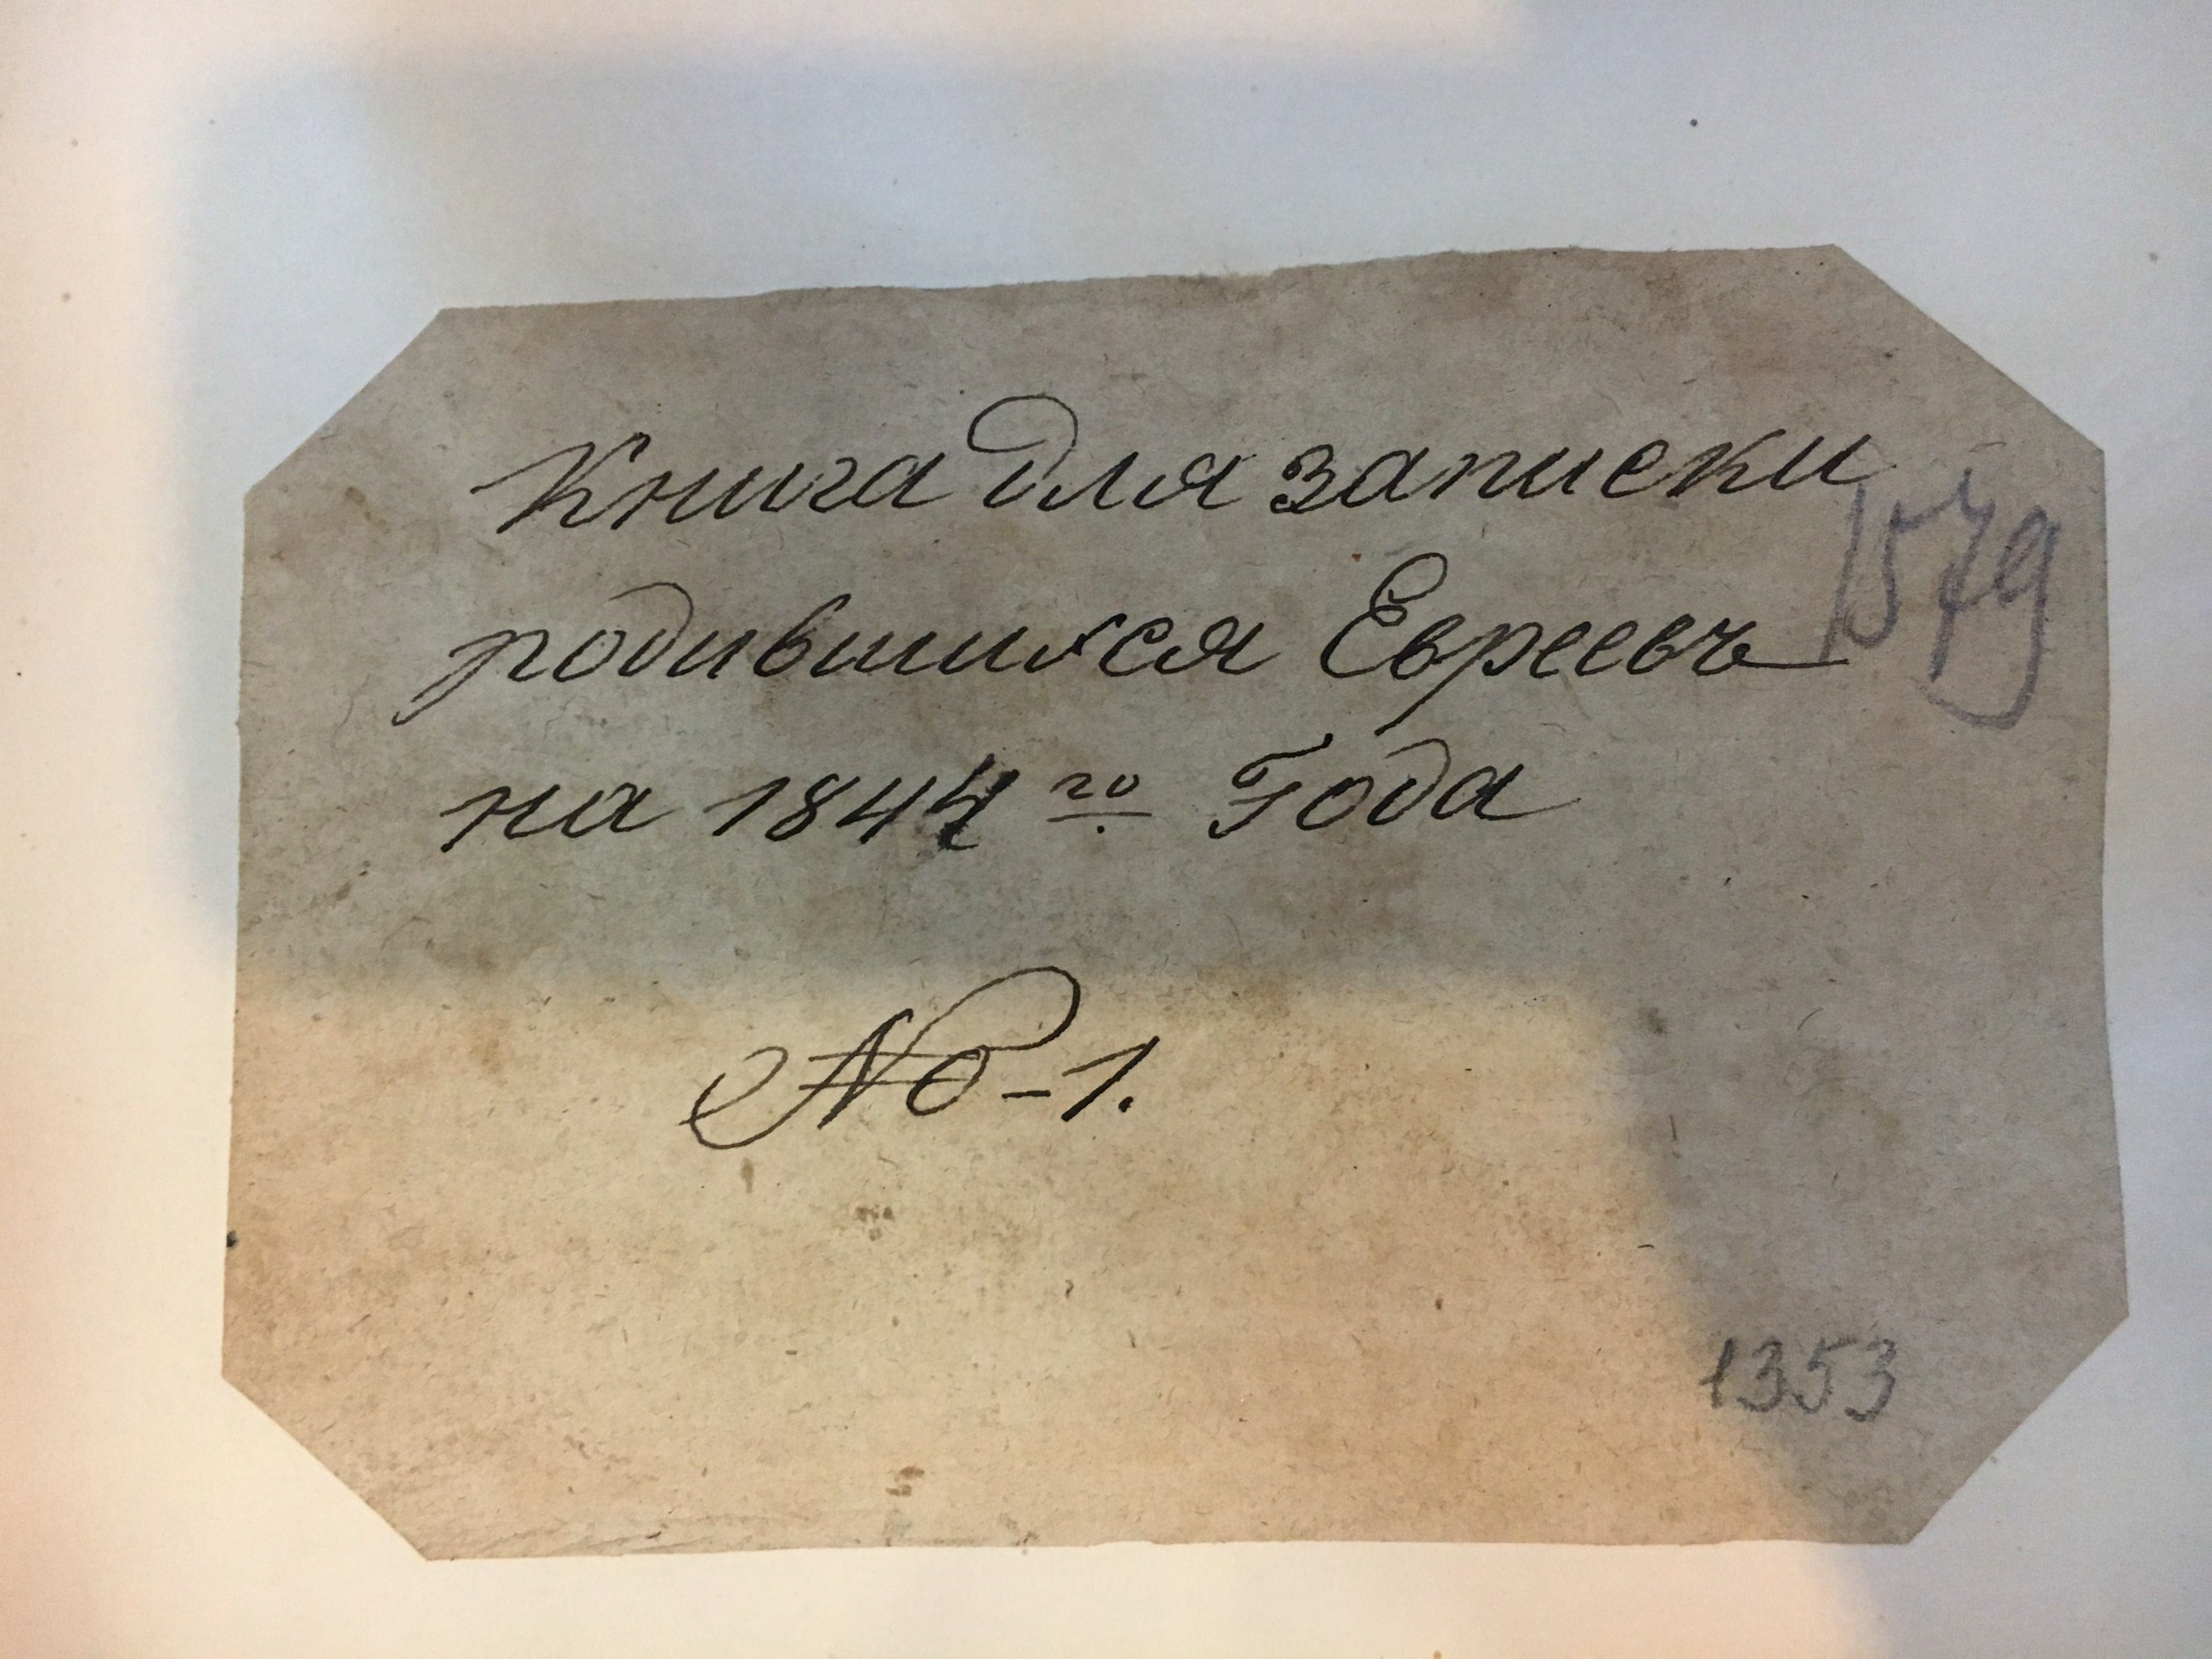 Книга для записки
1579
родившихся Евреевъ
на 1844го Года
№ - 1.
1353